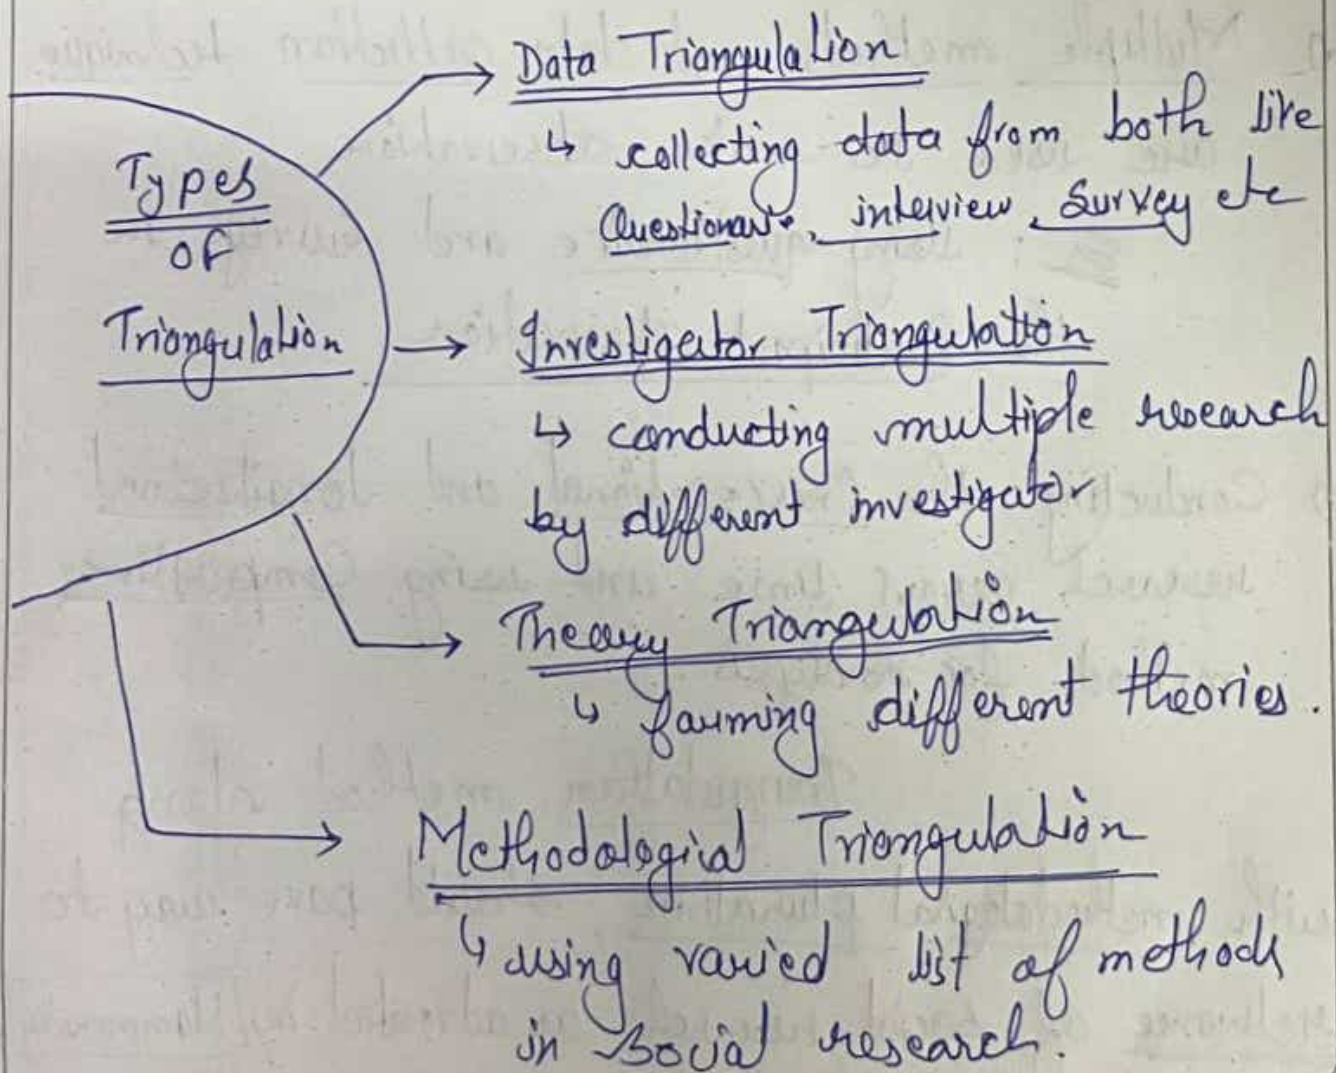 Types
of
Triangulation
Data Triangulation
↳ collecting data from both like
Questionare, interview, Survey etc
Investigator Triangulation
↳ conducting multiple research
by different investigator
Theory Triangulation
↳ farming different theories.
Methodological Triangulation
↳ using varied list of methods
in Social research.